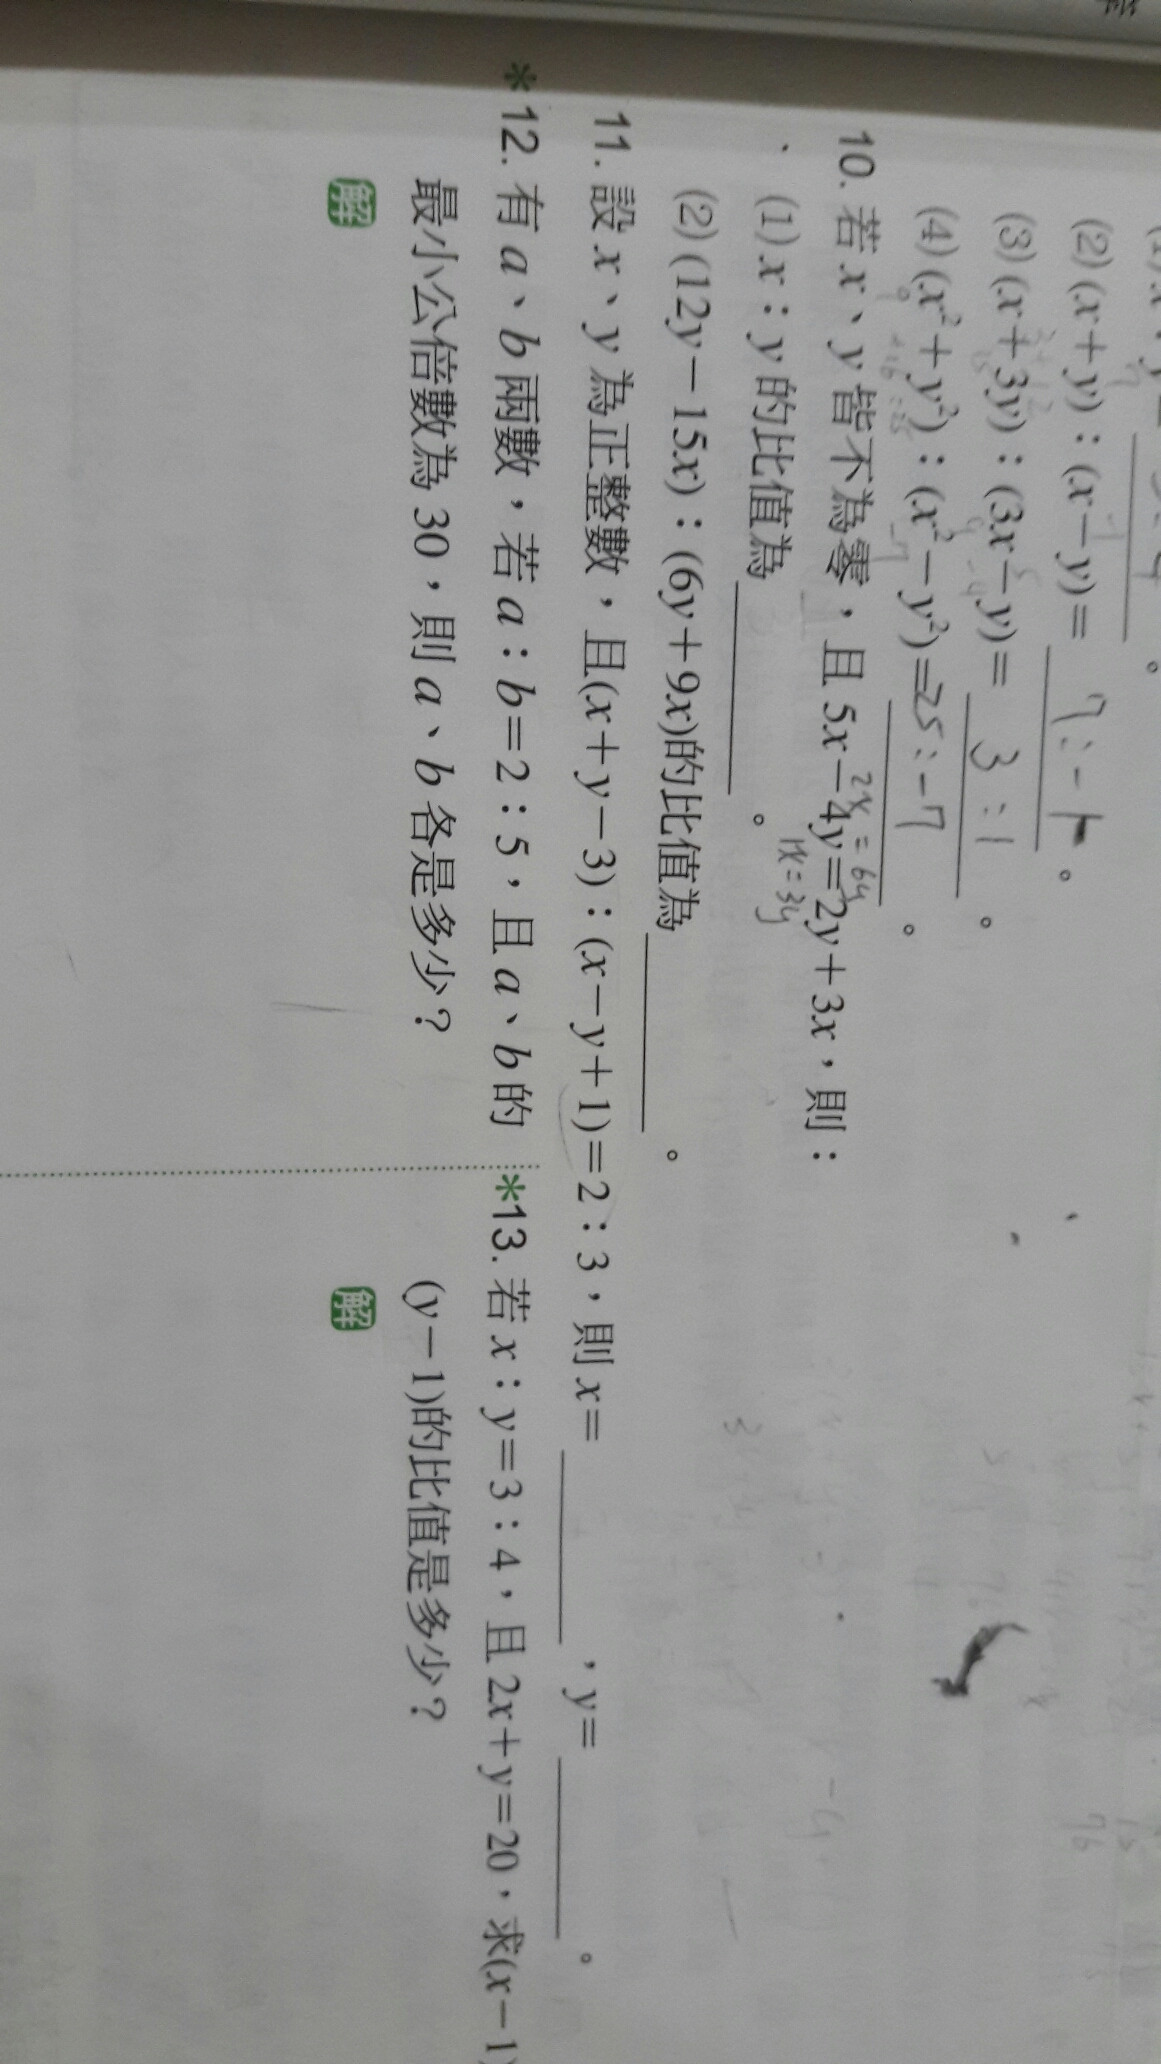 (2) (x+y)：(x−y)= 7：-1 。
(3) (x+3y)：(3x−y)= 3：1 。
(4) (x²+y²)：(x²−y²)=25：-7 。
10. 若 x、y 皆不為零，且 5x−4y=2y+3x，則：
2x=6y
1x=3y
(1) x：y 的比值為 。
(2) (12y−15x)：(6y+9x)的比值為 。
11. 設 x、y 為正整數，且(x+y−3)：(x−y+1)=2：3，則 x= ，y= 。
*12. 有 a、b 兩數，若 a：b=2：5，且 a、b 的
最小公倍數為 30，則 a、b 各是多少？
解
*13. 若 x：y=3：4，且 2x+y=20，求(x−1)
(y−1)的比值是多少？
解